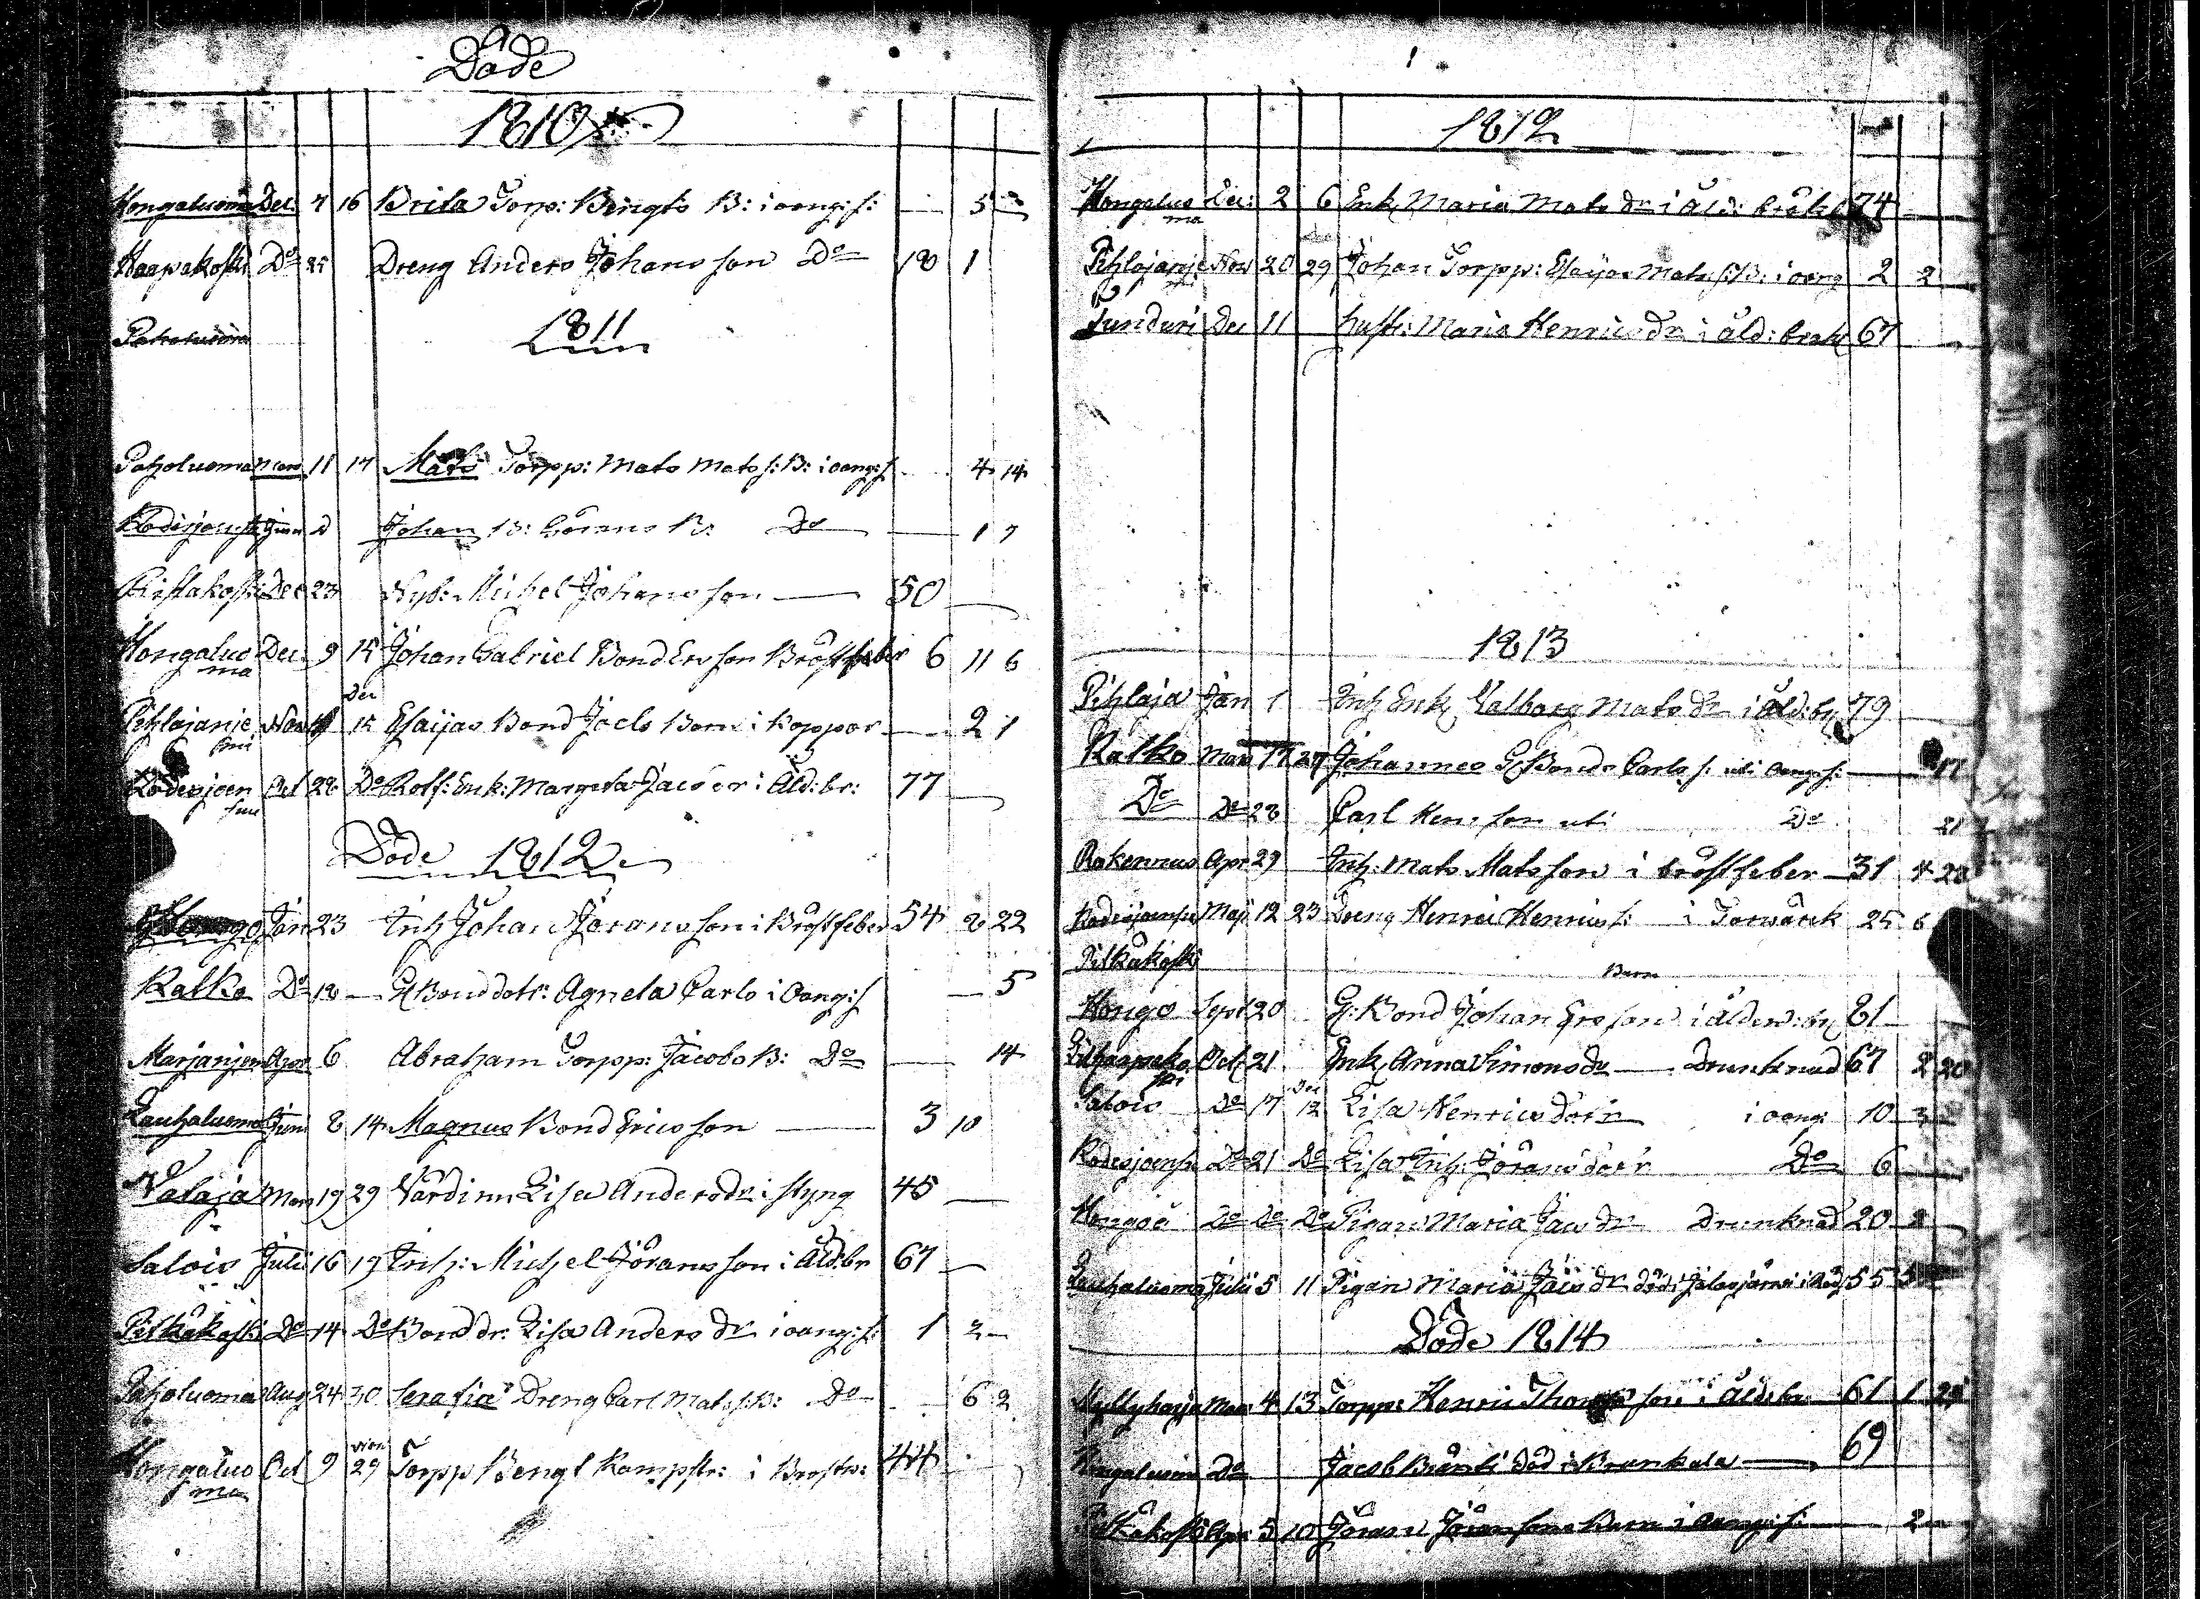 Döde
1810
Hongaluoma Dec. 7 16 Brita Torp: Bengts B: i oang: s: — 5 —
Haapakoski Do 25 Dreng Anders Johansson Do 18 1
1811
Paholuoma Mars 11 17 Mats Torpp: Mats Mats s: B: i oang: s — 4 14
Johan B: Görans B: Do — 1 7
Dec 23 Nyb: Michel Johansson — 50 —
Hongaluo Dec 9 15 Johan Gabriel Bond Ers son Bröstfeber 6 11 6
ma
Dec
Pihlajanie Nov 15 Esaijas Bond Joels Barn i Koppor — 2 1
mi
Oct 28 Do Rotf: Enk: Margeta Jacs dr i Åld: br: 77 —
Döde 1812
Jan 23 Inh Johan Jöransson i Bröstfeber 54 8 22
Katko Do 18 — G Bond dotr: Agneta Carls i oang: s — 5
Marjanjem Apr 6 Abraham Torpp: Jacobs B: Do — 14
Lauhaluoma Juni 8 14 Magnus Bond Ericsson — 3 10
Valaja Mars 19 29 Värdinn Lisa Anders dr i styng 45 —
Salois Julii 16 19 Inh: Michel Jöransson i Åld: br 67 —
Pitkäkoski Do 14 Do Bond dr. Lisa Anders dr i oang: s: 1 2 —
Paholuoma Aug 24 30 Serafia Dreng Carl Mats s: B: Do — 6 2
Nov
Hongaluo Oct 9 29 Torpp Bengt Kampstr: i Brostv: 44
ma
1812
Hongaluo Dec: 2 6 Enk Maria Mats dr i Åld: bräkl 74 —
ma
Pihlajanje Nov 20 29 Johan Torpp: Esaijas Mats s: B: i oang 2 2
Tunduri Dec 11 hustr: Maria Henrics dr i åld: bräkl 67
1813
Pihlaja Jan 1 Inh Enk Valborg Mats dr i Åld: br 79
Katko Mars 17 27 Johannes G Bonds Carls s: uti oang: s: — 17
Do Do 28 Carl Hen: son uti Do 21
Rakennus Apr 29 Inh: Mats Matsson i bröstfeber 31 4 28
Rodesjoensu Maji 12 23 Dreng Henric Henrics s: i Torwärk 25 6
Pitkäkoski
Barn
Hongo Sept 20 G: Bond Johan Ersson i ålders: br 81 —
Oct 21 Enk Anna Simons dr — Drunknad 67 2 20
Dec
Salois Do 17 12 Lisa Henrics dotr i oang: 10 3
Rodesjoensu Do 21 Do Lisa Inh: Jörans dotr Do 6 —
Hongo Do Do Do Pigan Maria Jacs dr Drunknad 20
Lauhaluoma Julii 5 11 Pigan Maria Jacs dr död i Jalasjärvi 55
Döde 1814
Myllyharja Mars 4 13 Torpp: Henric Thomasson i Ålds: br 61 1 28
Hongaluoma Do Jacob död i — 69
Pitkäkoski Apr 5 10 Jöran Jöranssons Barn i oang: s: — 2